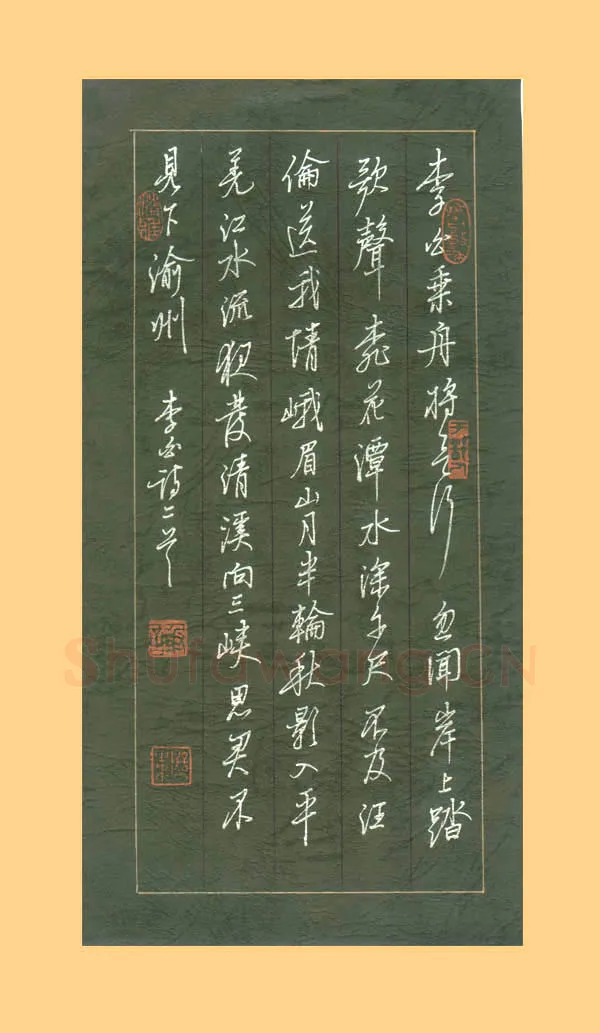 李白乘舟将欲行忽聞岸上踏
歌聲桃花潭水深千尺不及汪
倫送我情峨眉山月半輪秋影入平
羌江水流夜發清溪向三峽思君不
見下渝州 李白詩二首
Shufawang.CN